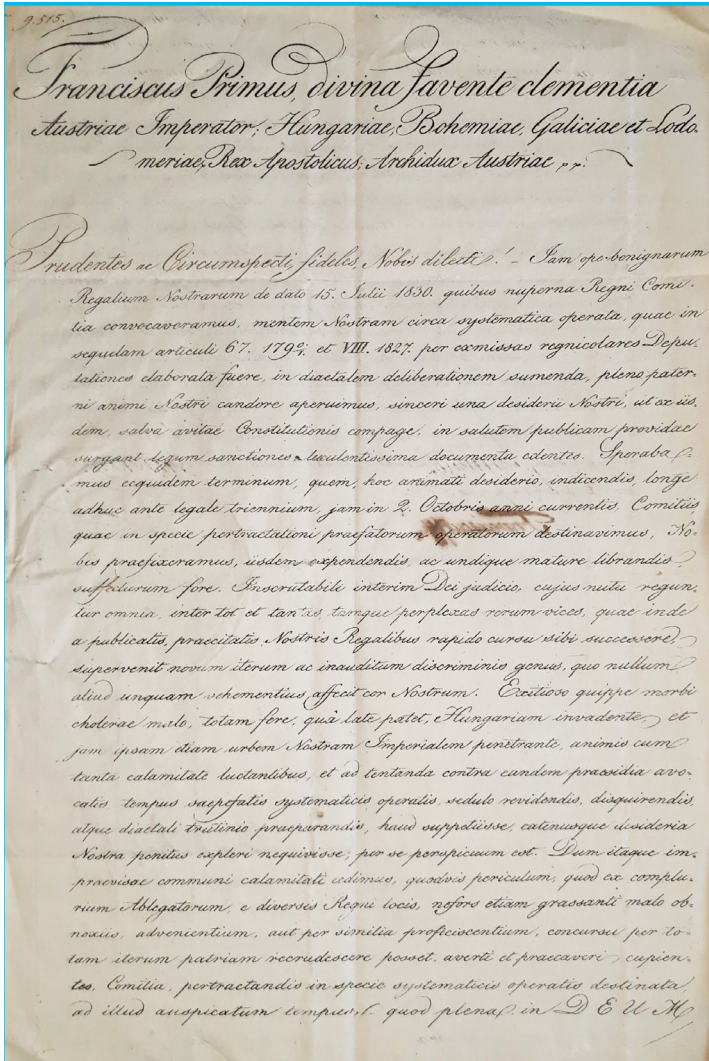 9.515.
Franciscus Primus, divina favente clementia
Austriae Imperator; Hungariae, Bohemiae, Galiciae et Lodo-
meriae, Rex Apostolicus; Archidux Austriae
Prudentes ac Circumspecti, fideles, Nobis dilecti! - Jam ope benignarum
Regalium Nostrarum de dato 15. Julii 1830. quibus nuperna Regni Comi-
tia convocaveramus, mentem Nostram circa systematica operata, quae in
sequelam articuli 67. 1790/1. et VIII. 1827. per exmissas regnicolares Depu-
tationes elaborata fuere, in diaetalem deliberationem sumenda, pleno pater-
ni animi Nostri candore aperuimus, sinceri una desiderii Nostri, ut ex iis-
dem, salva avitae Constitutionis compage, in salutem publicam providae
surgant legum sanctiones luculentissima documenta edentes. Speraba-
mus ecquidem terminum, quem, hoc animati desiderio, indicendis, longe
adhuc ante legale triennium, jam in 2. Octobris anni currentis, Comitiis
quae in specie pertractationi praefatorum operatorum destinavimus, No-
bis praefixeramus, iisdem expendendis, ac undique mature librandis
suffecturum fore. Inscrutabili interim Dei judicio, cujus nutu regun-
tur omnia, inter tot et tantas, tamque perplexas rerum vices, quae inde
a publicatis, praecitatis Nostris Regalibus rapido cursu sibi successere,
supervenit novum iterum ac inauditum discriminis genus, quo nullum
aliud unquam vehementius affecit cor Nostrum. Exitioso quippe morbi
cholerae malo, totam fere, qua late patet, Hungariam invadente, et
jam ipsam etiam urbem Nostram Imperialem penetrante, animis cum
tanta calamitate luctantibus, et ad tentanda contra eandem praesidia avo-
catis, tempus saepefatis systematicis operatis, sedulo revidendis, disquirendis,
atque diaetali trutinio praeparandis, haud suppetiisse, eatenusque desideria
Nostra penitus expleri nequivisse, per se perspicuum est. Dum itaque im-
praevisae communi calamitati cedimus, quodvis periculum, quod ex complu-
rium Ablegatorum, e diversis Regni locis, nefors etiam grassanti malo ob-
noxiis, advenientium, aut per similia proficiscentium, concursu per to-
tam iterum patriam recrudescere posset, averti et praecaveri cupien-
tes, Comitia, pertractandis in specie systematicis operatis destinata,
ad illud auspicatum tempus, quod plena in DEUM